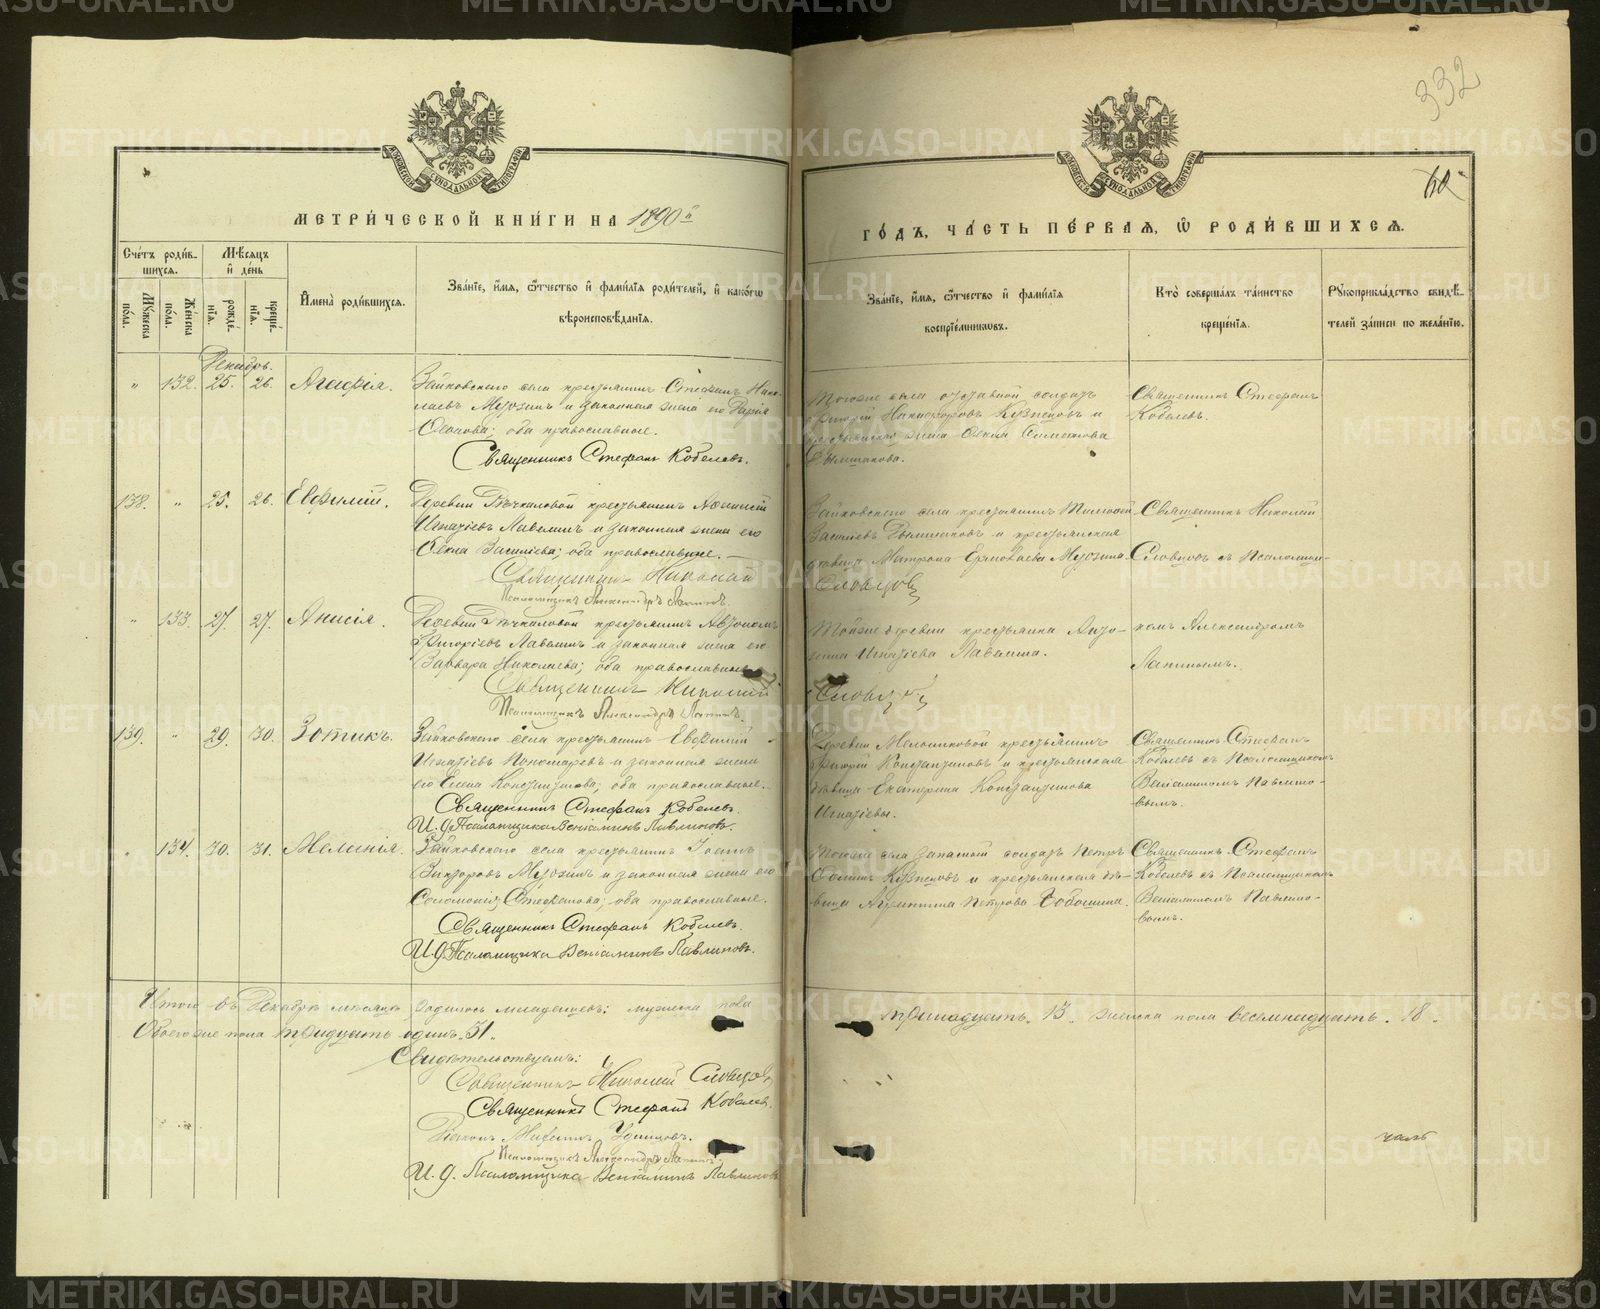 332
60
МЕТРИ́ЧЕСКОЙ КНИ́ГИ НА 1890й
ГО́ДЪ, ЧА́СТЬ ПЕ́РВАЯ, Ѡ҆ РОДИ́ВШИХСЯ.
Сче́тъ роди́вшихся.
Мꙋжеска по́ла.
Же́нска по́ла.
Мѣ́сяцъ и҆ де́нь
рожде́нїя.
креще́нїя.
И҆мена̀ роди́вшихся.
Зва́нїе, и҆́мя, ѻ҆́тчество и҆ фами́лїя роди́телей, и҆ како́гѡ
вѣроисповѣ́данїя.
Зва́нїе, и҆́мя, ѻ҆́тчество и҆ фами́лїя
воспрїе́мникѡвъ.
Кто̀ соверша́лъ та́инство
креще́нїя.
Рꙋкоприкла́дство свидѣ́-
телей за́писи по жела́нїю.
Декабрь.
" 132. 25. 26. Агафія.
Зайковскаго села крестьянинъ Стефанъ Нико-
лаевъ Мухинъ и законная жена его Дарія
оба православные.
Священникъ Стефанъ Кобелевъ.
Тогоже села отставной солдатъ
Григорій Никифоровъ Кузнецовъ и
крестьянская жена Ѳекла Симеонова
Священникъ Стефанъ
Кобелевъ.
138. " 25. 26. Евфимій.
Деревни Бѣчкаловой крестьянинъ
Игнатіевъ и законная жена его
Ѳекла Василіева; оба православные.
Священникъ Николай
Словцовъ
Псаломщикъ Александръ Лапинъ.
Зайковскаго села крестьянинъ Тимофей
Василіевъ и крестьянская
дѣвица Матрона Ермолаева Мухина.
Священникъ Николай
Словцовъ съ Псаломщи-
" 133. 27. 27. Анисія.
Деревни Бѣчкаловой крестьянинъ
Григоріевъ и законная жена его
Варвара Николаева; оба православные.
Священникъ Николай
Словцовъ
Псаломщикъ Александръ Лапинъ.
Тойже деревни крестьянка
Игнатіева
комъ Александромъ
Лапинымъ.
139. " 29. 30. Зотикъ.
Зайковскаго села крестьянинъ Евфимій
Игнатіевъ Пономаревъ и законная жена
его Елена Константинова; оба православные.
Священникъ Стефанъ Кобелевъ.
И. д. Псаломщика Веніаминъ Павлиновъ.
Деревни Мельниковой крестьянинъ
Григорій Константиновъ и крестьянская
дѣвица Екатерина Константинова
Игнатіевы.
Священникъ Стефанъ
Кобелевъ съ Псаломщикомъ
Веніаминомъ Павлино-
вымъ.
" 134. 30. 31. Меланія.
Зайковскаго села крестьянинъ Іоаннъ
Викторовъ Мухинъ и законная жена его
Соломонія Стефанова; оба православные.
Священникъ Стефанъ Кобелевъ.
И. д. Псаломщика Веніаминъ Павлиновъ.
Тогоже села запасный солдатъ Петръ
Кузнецовъ и крестьянская дѣ-
вица Агриппина Петрова
Священникъ Стефанъ
Кобелевъ съ Псаломщикомъ
Веніаминомъ Павлино-
вымъ.
Итого въ Декабрѣ мѣсяцѣ родилось младенцевъ: мужеска пола тринадцать. 13. женска пола восемнадцать. 18.
Обоего же пола тридцать одинъ. 31.
Свидѣтельствуемъ:
Священникъ Николай Словцовъ
Священникъ Стефанъ Кобелевъ.
Псаломщикъ Александръ Лапинъ.
И. д. Псаломщика Веніаминъ Павлиновъ